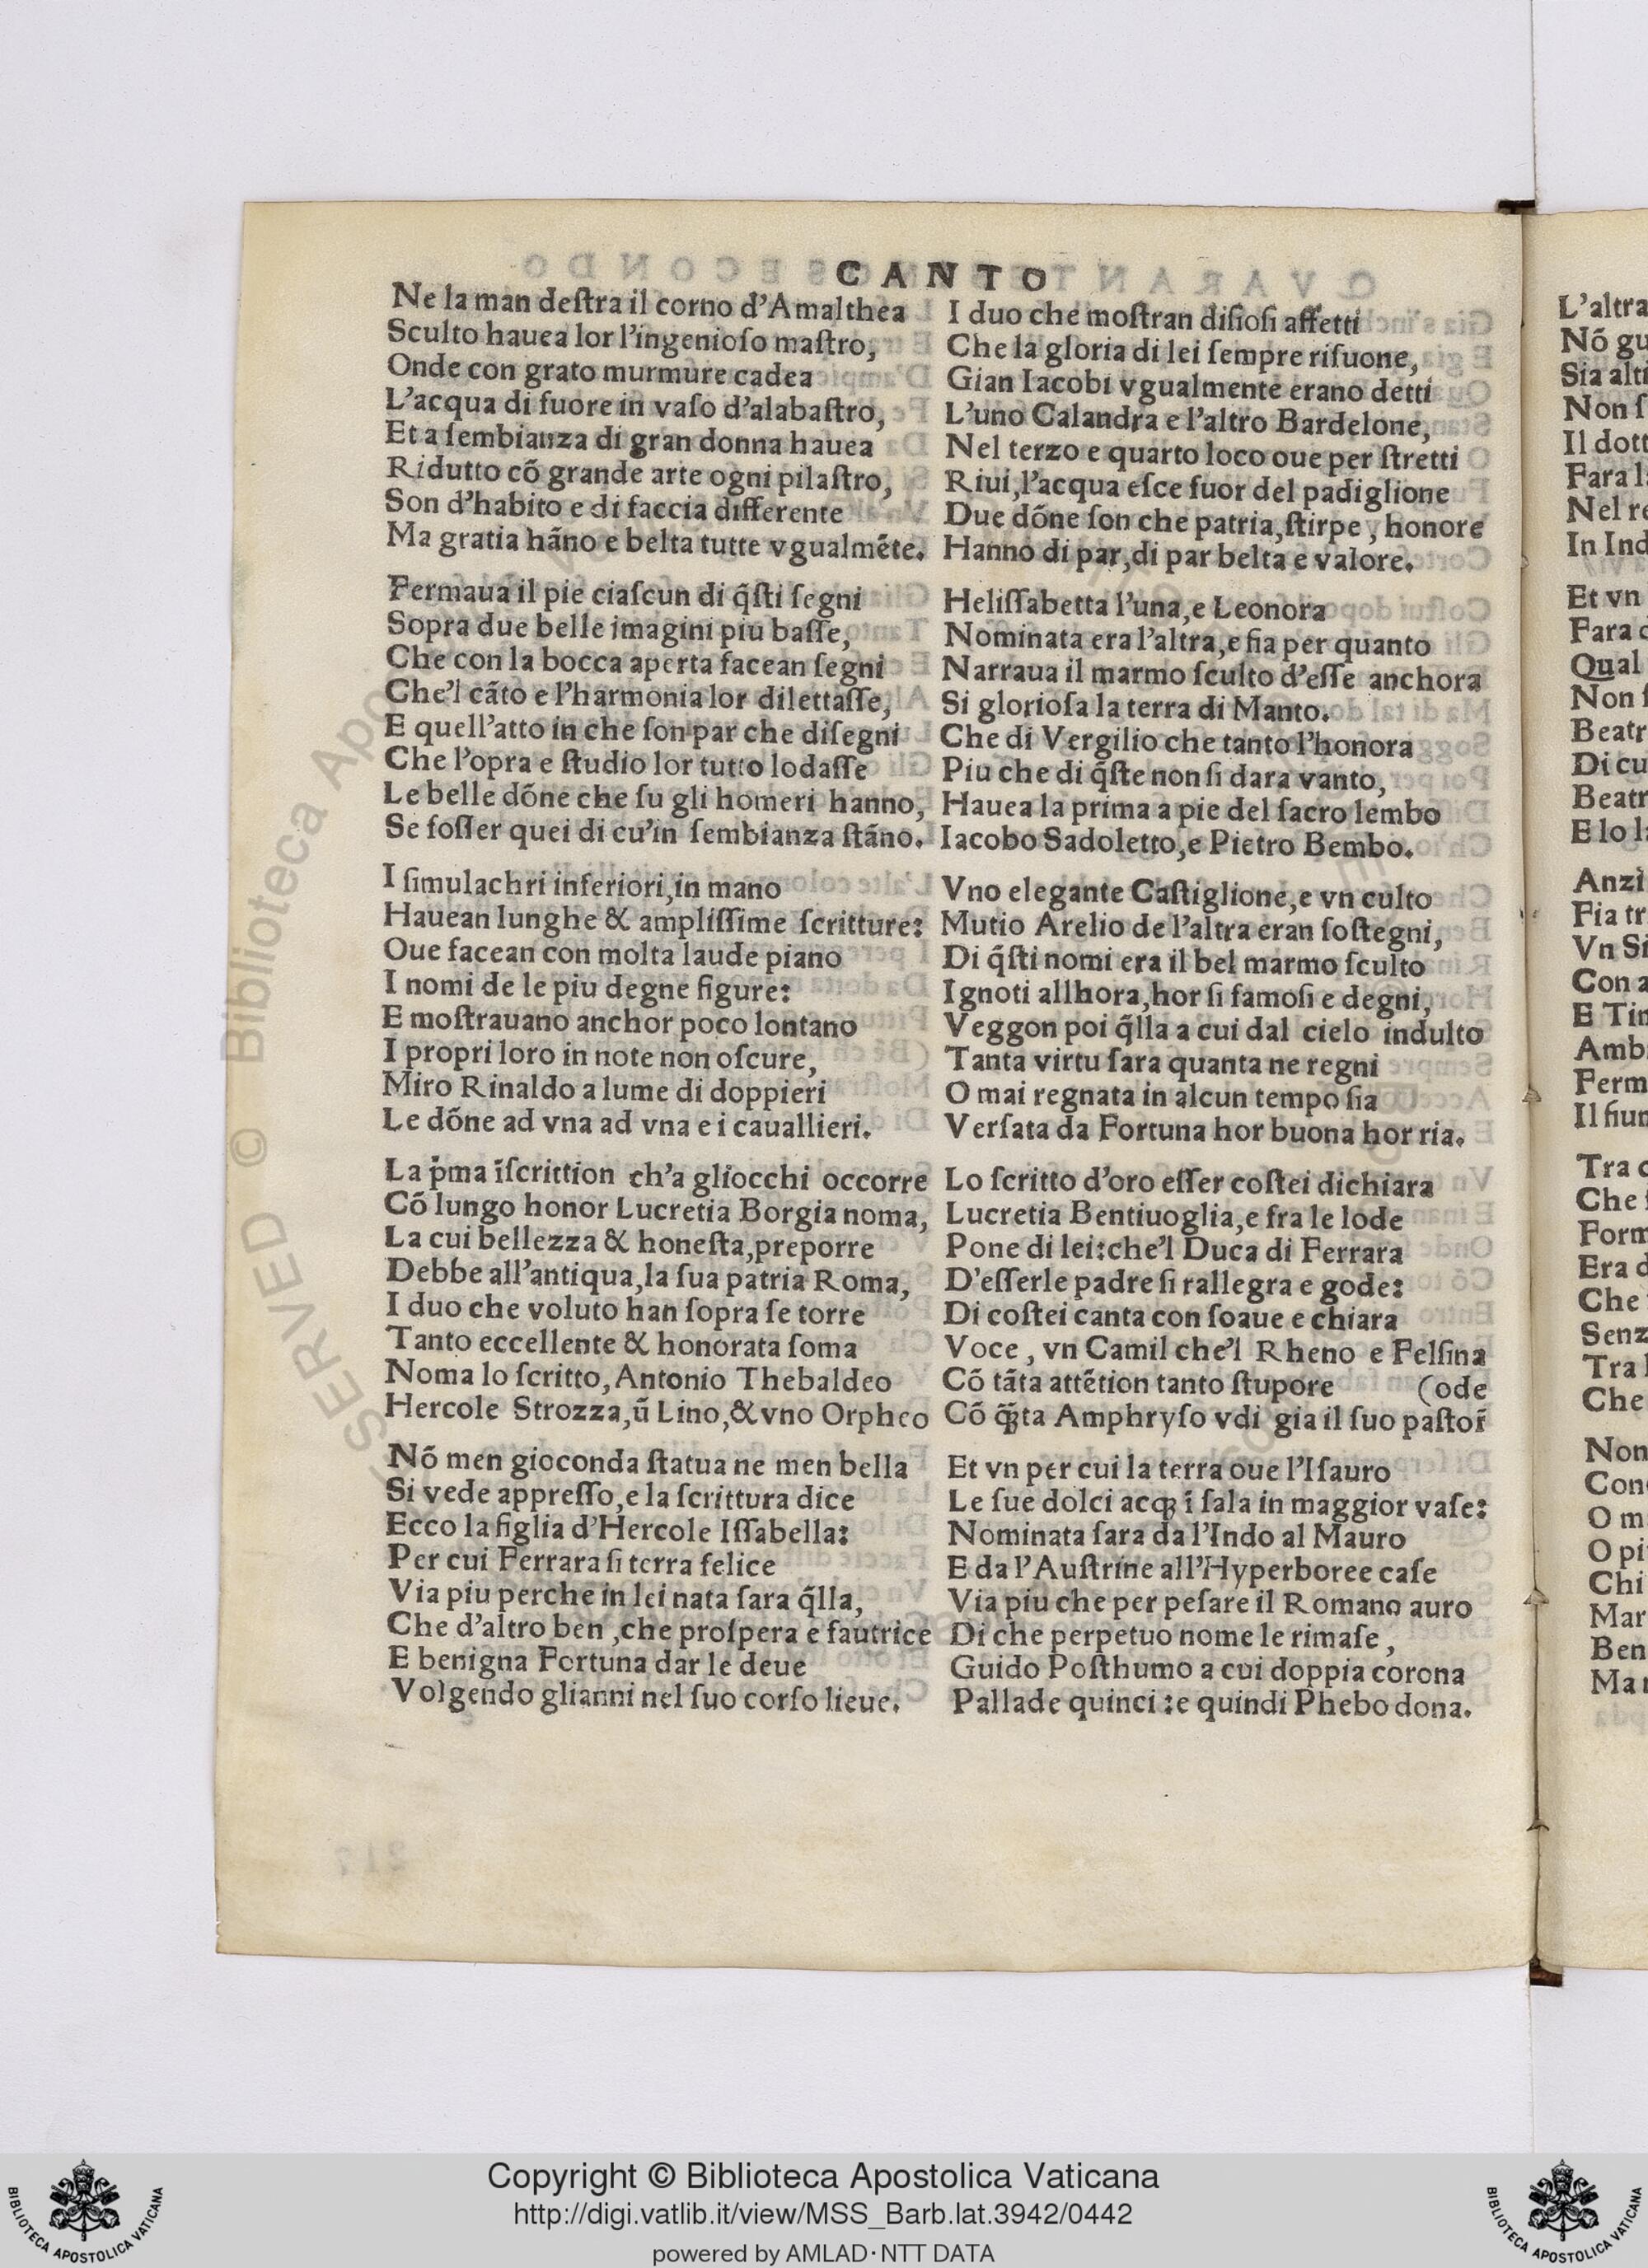 CANTO
Ne la man deſtra il corno d'Amalthea
Sculto hauea lor l'ingenioſo maſtro,
Onde con grato murmure cadea
L'acqua di fuore in vaſo d'alabaſtro,
Et a ſembianza di gran donna hauea
Ridutto cõ grande arte ogni pilaſtro,
Son d'habito e di faccia differente
Ma gratia hãno e belta tutte vgualmẽte.
Fermaua il pie ciaſcun di q̃ſti ſegni
Sopra due belle imagini piu baſſe,
Che con la bocca aperta facean ſegni
Che'l cãto e l'harmonia lor dilettaſſe,
E quell'atto in che ſon par che diſegni
Che l'opra e ſtudio lor tutto lodaſſe
Le belle dõne che ſu gli homeri hanno,
Se foſſer quei di cu'in ſembianza ſtãno.
I ſimulachri inferiori,in mano
Hauean lunghe & ampliſſime ſcritture:
Oue facean con molta laude piano
I nomi de le piu degne figure:
E moſtrauano anchor poco lontano
I propri loro in note non oſcure,
Miro Rinaldo a lume di doppieri
Le dõne ad vna ad vna e i cauallieri.
La p̃ma ĩſcrittion ch'a gliocchi occorre
Cõ lungo honor Lucretia Borgia noma,
La cui bellezza & honeſta,preporre
Debbe all'antiqua,la ſua patria Roma,
I duo che voluto han ſopra ſe torre
Tanto eccellente & honorata ſoma
Noma lo ſcritto, Antonio Thebaldeo
Hercole Strozza,ũ Lino,& vno Orpheo
Nõ men gioconda ſtatua ne men bella
Si vede appreſſo,e la ſcrittura dice
Ecco la figlia d'Hercole Iſſabella:
Per cui Ferrara ſi terra felice
Via piu perche in lei nata ſara q̃lla,
Che d'altro ben ,che proſpera e fautrice
E benigna Fortuna dar le deue
Volgendo glianni nel ſuo corſo lieue.
I duo che moſtran diſioſi affetti
Che la gloria di lei ſempre riſuone,
Gian Iacobi vgualmente erano detti
L'uno Calandra e l'altro Bardelone,
Nel terzo e quarto loco oue per ſtretti
Riui,l'acqua eſce fuor del padiglione
Due dõne ſon che patria,ſtirpe, honore
Hanno di par,di par belta e valore.
Heliſſabetta l'una,e Leonora
Nominata era l'altra,e fia per quanto
Narraua il marmo ſculto d'eſſe anchora
Si glorioſa la terra di Manto.
Che di Vergilio che tanto l'honora
Piu che di q̃ſte non ſi dara vanto,
Hauea la prima a pie del ſacro lembo
Iacobo Sadoletto,e Pietro Bembo.
Vno elegante Caſtiglione,e vn culto
Mutio Arelio de l'altra eran ſoſtegni,
Di q̃ſti nomi era il bel marmo ſculto
Ignoti allhora,hor ſi famoſi e degni,
Veggon poi q̃lla a cui dal cielo indulto
Tanta virtu ſara quanta ne regni
O mai regnata in alcun tempo ſia
Verſata da Fortuna hor buona hor ria.
Lo ſcritto d'oro eſſer coſtei dichiara
Lucretia Bentiuoglia,e fra le lode
Pone di lei:che'l Duca di Ferrara
D'eſſerle padre ſi rallegra e gode:
Di coſtei canta con ſoaue e chiara
Voce , vn Camil che'l Rheno e Felſina
Cõ tãta attẽtion tanto ſtupore (ode
Cõ q̃ta Amphryſo vdi gia il ſuo paſtor̃
Et vn per cui la terra oue l'Iſauro
Le ſue dolci acqꝫ ĩ ſala in maggior vaſe:
Nominata ſara da l'Indo al Mauro
E da l'Auſtrine all'Hyperboree caſe
Via piu che per peſare il Romano auro
Di che perpetuo nome le rimaſe ,
Guido Poſthumo a cui doppia corona
Pallade quinci :e quindi Phebo dona.
L'altra
Nõ gu
Sia alti
Non ſ
Il dott
Fara l
Nel re
In Ind
Et vn
Fara
Qual
Non
Beatr
Di cu
Beatr
E lo l
Anzi
Fia tr
Vn Si
Con a
E Tim
Amb
Ferm
Il fiun
Tra
Che
Form
Era d
Che
Senz
Tra l
Che
Non
Con
O m
O pi
Chi
Mar
Ben
Ma
SERVED © Biblioteca Apo
Copyright © Biblioteca Apostolica Vaticana
http://digi.vatlib.it/view/MSS_Barb.lat.3942/0442
powered by AMLAD·NTT DATA
BIBLIOTECA APOSTOLICA VATICANA
BIBLIOTECA APOSTOLICA VATICANA